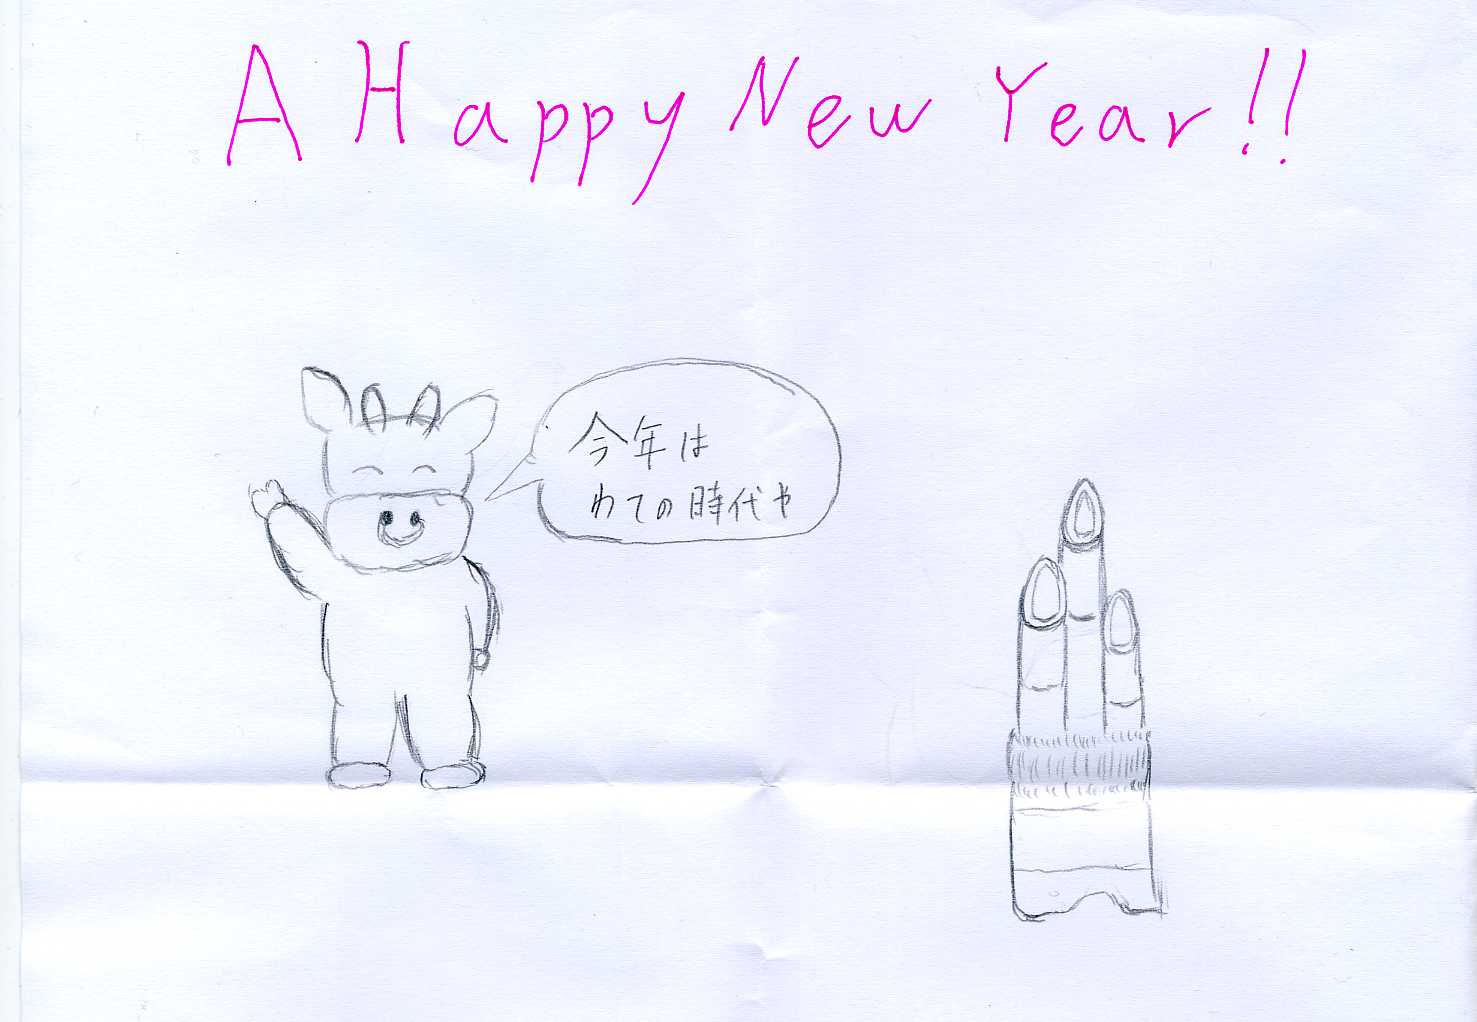 A Happy New Year!!
今年は
わての時代や